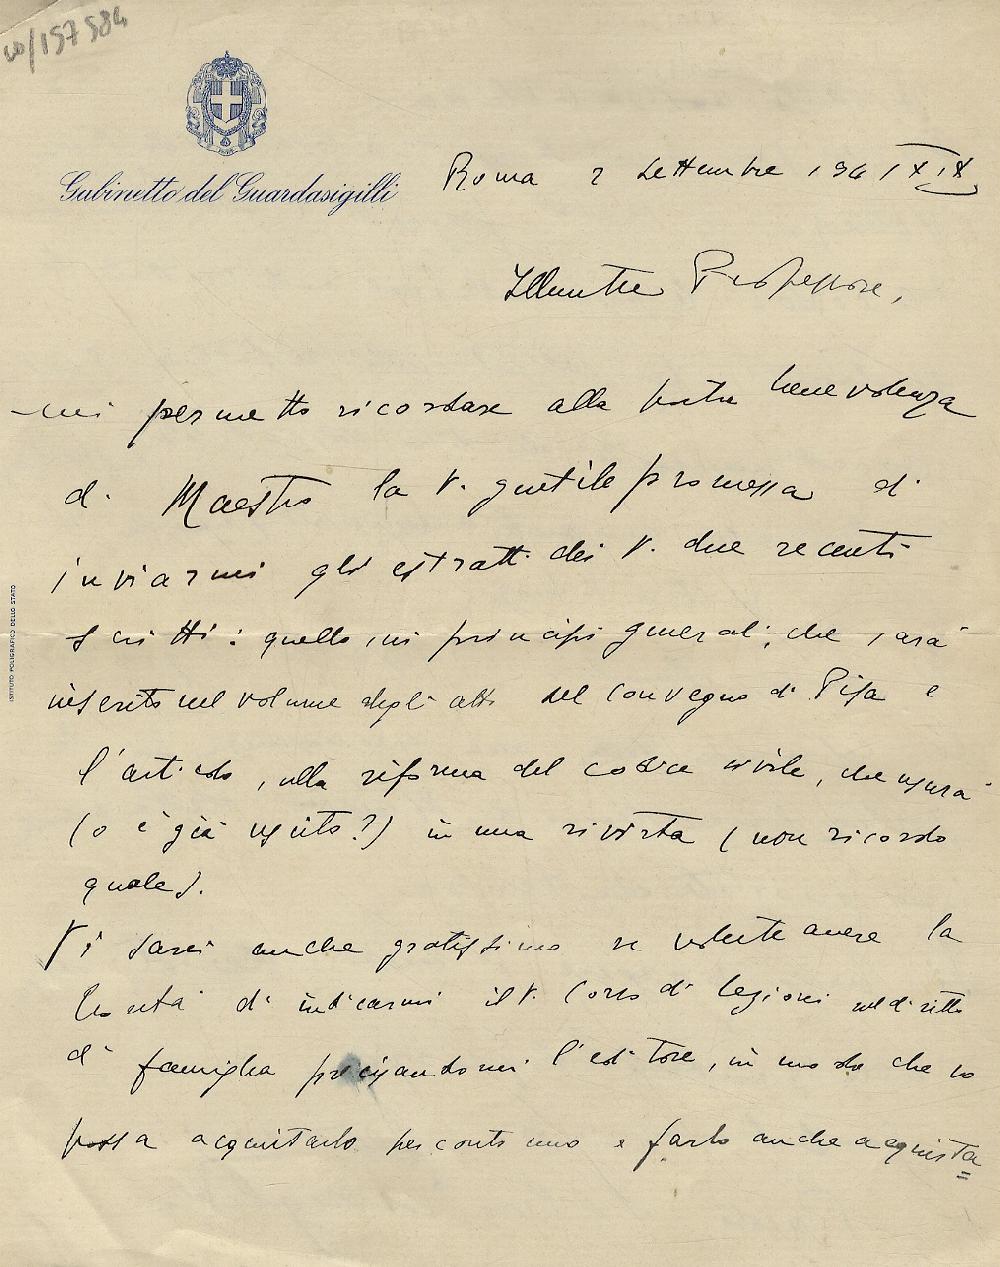 10/157584
Gabinetto del Guardasigilli
Roma 2 Settembre 1941 XIX
Illustre Professore,
mi permetto ricordare alla vostra benevolenza
di Maestro la V. gentile promessa di
inviarmi gli estratti dei V. due recenti
scritti: quello sui principi generali, che sarà
inserito nel volume degli atti del convegno di Pisa e
l'articolo sulla riforma del codice civile, che uscirà
(o è già uscito?) in una rivista (non ricordo
quale).
Vi sarei anche gratissimo se voleste avere la
bontà di indicarmi il V. Corso di lezioni sul diritto
di famiglia precisandomi l'editore, in modo che io
possa acquistarlo per conto mio e farlo anche acquista=
ISTITUTO POLIGRAFICO DELLO STATO